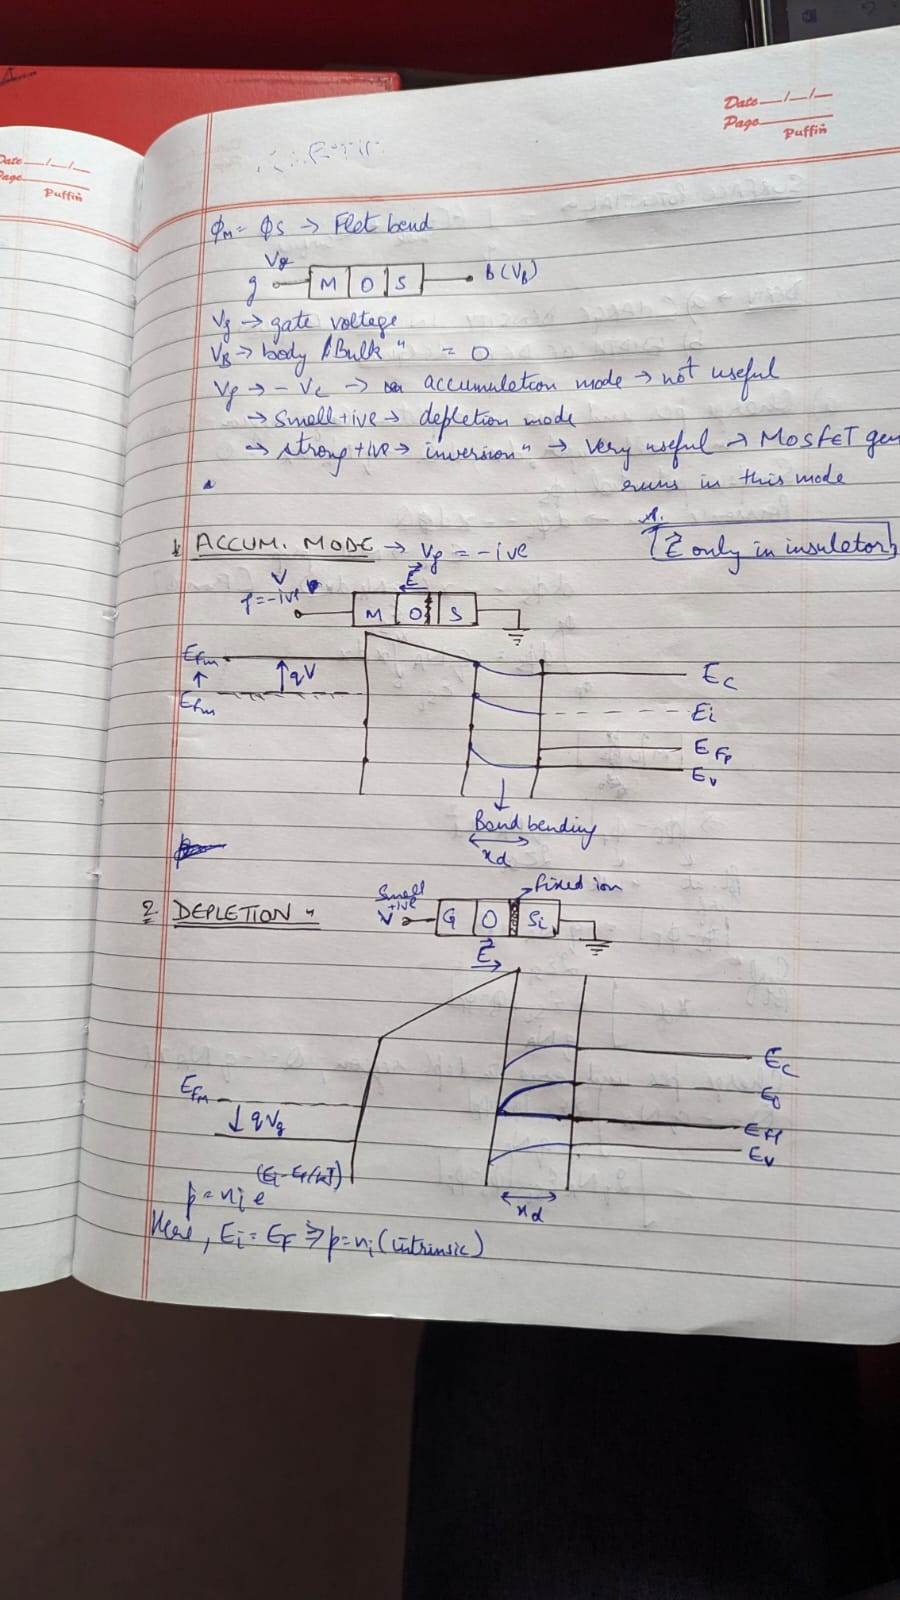 Date __/__/__
Page
Puffin
Date __/__/__
Page
Puffin
ϕM = ϕS → Flat band
Vg
g M O S B (VB)
Vg → gate voltage
VB → body / Bulk " = 0
Vg → - Ve → accumulation mode → not useful
→ small +ive → depletion mode
→ strong +ive → inversion " → Very useful → MOSFET gen
runs in this mode
E⃗ only in insulator
1 ACCUM. MODE → Vg = -ive
V
= -ive
E⃗
M O S
Efm
↑
Efm
↑ qV
EC
Ei
EFp
Ev
Band bending
xd
2 DEPLETION "
Small
+ive
V
fixed ion
G O Si
E⃗
EC
EFM
↓ qVg
Ev
xd
p = ni e
Here, Ei = EF ⇒ p = ni (intrinsic)